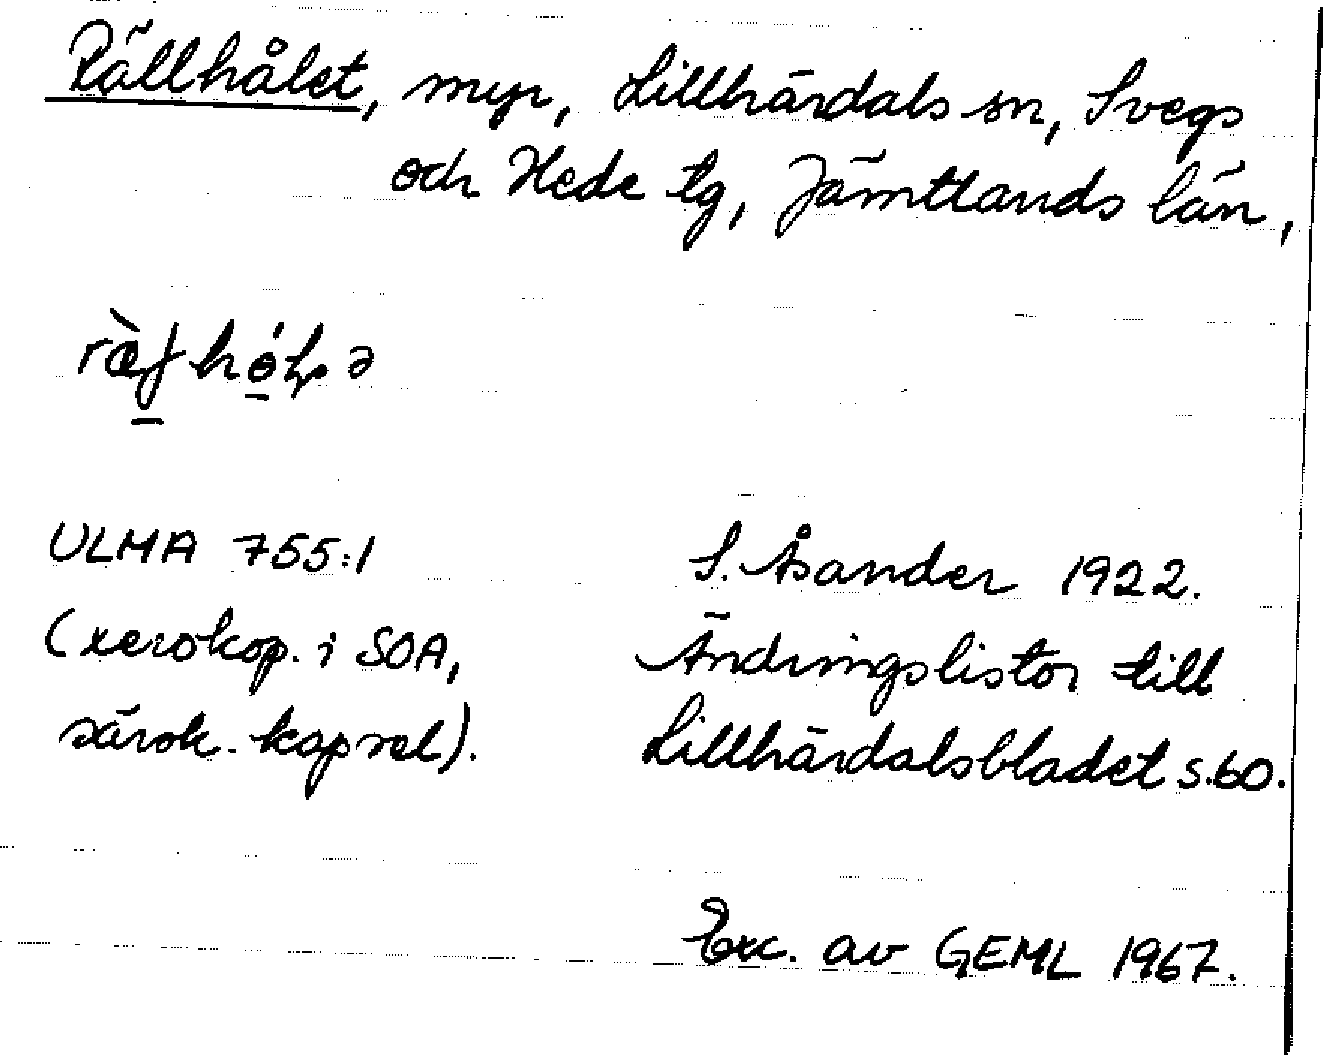 Rällhålet, myr, Lillhärdals sn, Svegs
och Hede tg, Jämtlands län,
ULMA 755:1
S. Åsander 1922.
(xerokop. i SOA,
Ändringslistor till
särsk. kapsel).
Lillhärdalsbladet s.60.
Exc. av GEML 1967.